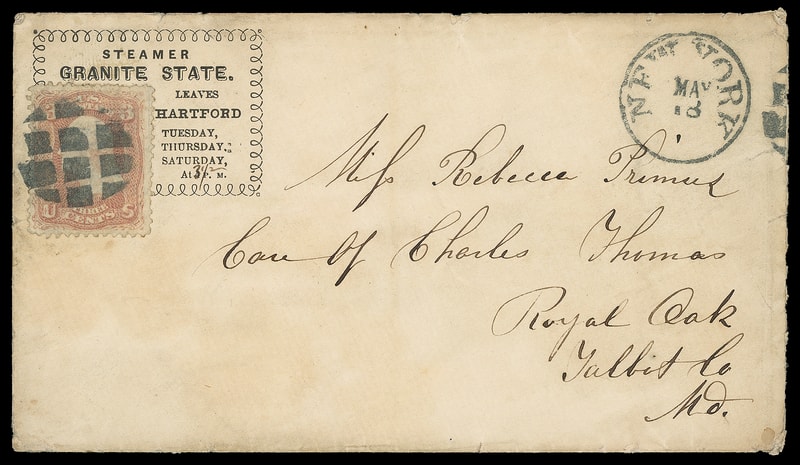 STEAMER
GRANITE STATE.
LEAVES
HARTFORD
TUESDAY,
THURSDAY,
SATURDAY,
At 3½ P. M.
U CENTS S
NEW YORK
MAY
18
Miss Rebecca Primus
Care Of Charles Thomas
Royal Oak
Talbot Co
Md.